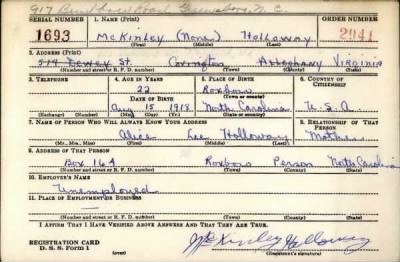 917 Road, Greensboro, N.C.
SERIAL NUMBER 1. NAME (Print) ORDER NUMBER
1693 McKinley (None) Holloway 2941
(First) (Middle) (Last)
2. ADDRESS (Print)
514 Dewey St. Covington Alleghany Virginia
(Number and street or R. F. D. number) (Town) (County) (State)
3. TELEPHONE 4. AGE IN YEARS 5. PLACE OF BIRTH 6. COUNTRY OF CITIZENSHIP
22 Roxboro
DATE OF BIRTH (Town or county)
Aug 15 1918 North Carolina U.S.A
(Exchange) (Number) (Mo.) (Day) (Yr.) (State or country)
7. NAME OF PERSON WHO WILL ALWAYS KNOW YOUR ADDRESS 8. RELATIONSHIP OF THAT PERSON
Alice Lee Holloway Mother
(Mr., Mrs., Miss) (First) (Middle) (Last)
9. ADDRESS OF THAT PERSON
Box 164 Roxboro Person North Carolina
(Number and street or R. F. D. number) (Town) (County) (State)
10. EMPLOYER'S NAME
Unemployed
11. PLACE OF EMPLOYMENT OR BUSINESS
(Number and street or R. F. D. number) (Town) (County) (State)
I AFFIRM THAT I HAVE VERIFIED ABOVE ANSWERS AND THAT THEY ARE TRUE.
REGISTRATION CARD
D. S. S. Form 1
McKinley Holloway
(Registrant's signature)